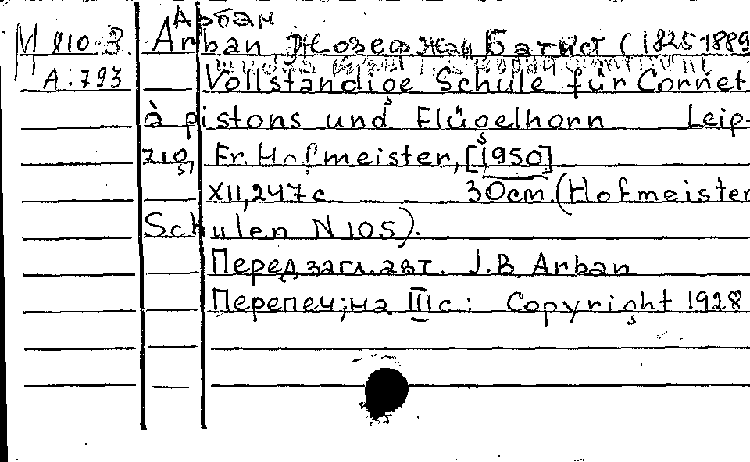 Арбан
М 810-3 Arban Жозеф Жан Батист (1825-1889
А-793 Vollständige Schule für Cornet
à pistons und Flügelhorn Leip-
zig, Fr. Hofmeister, [1950]
XII, 247 c 30cm. (Hofmeister
Schulen N 105).
Перед загл. авт. J.B. Arban
Перепеч; на III с.: Copyright 1928